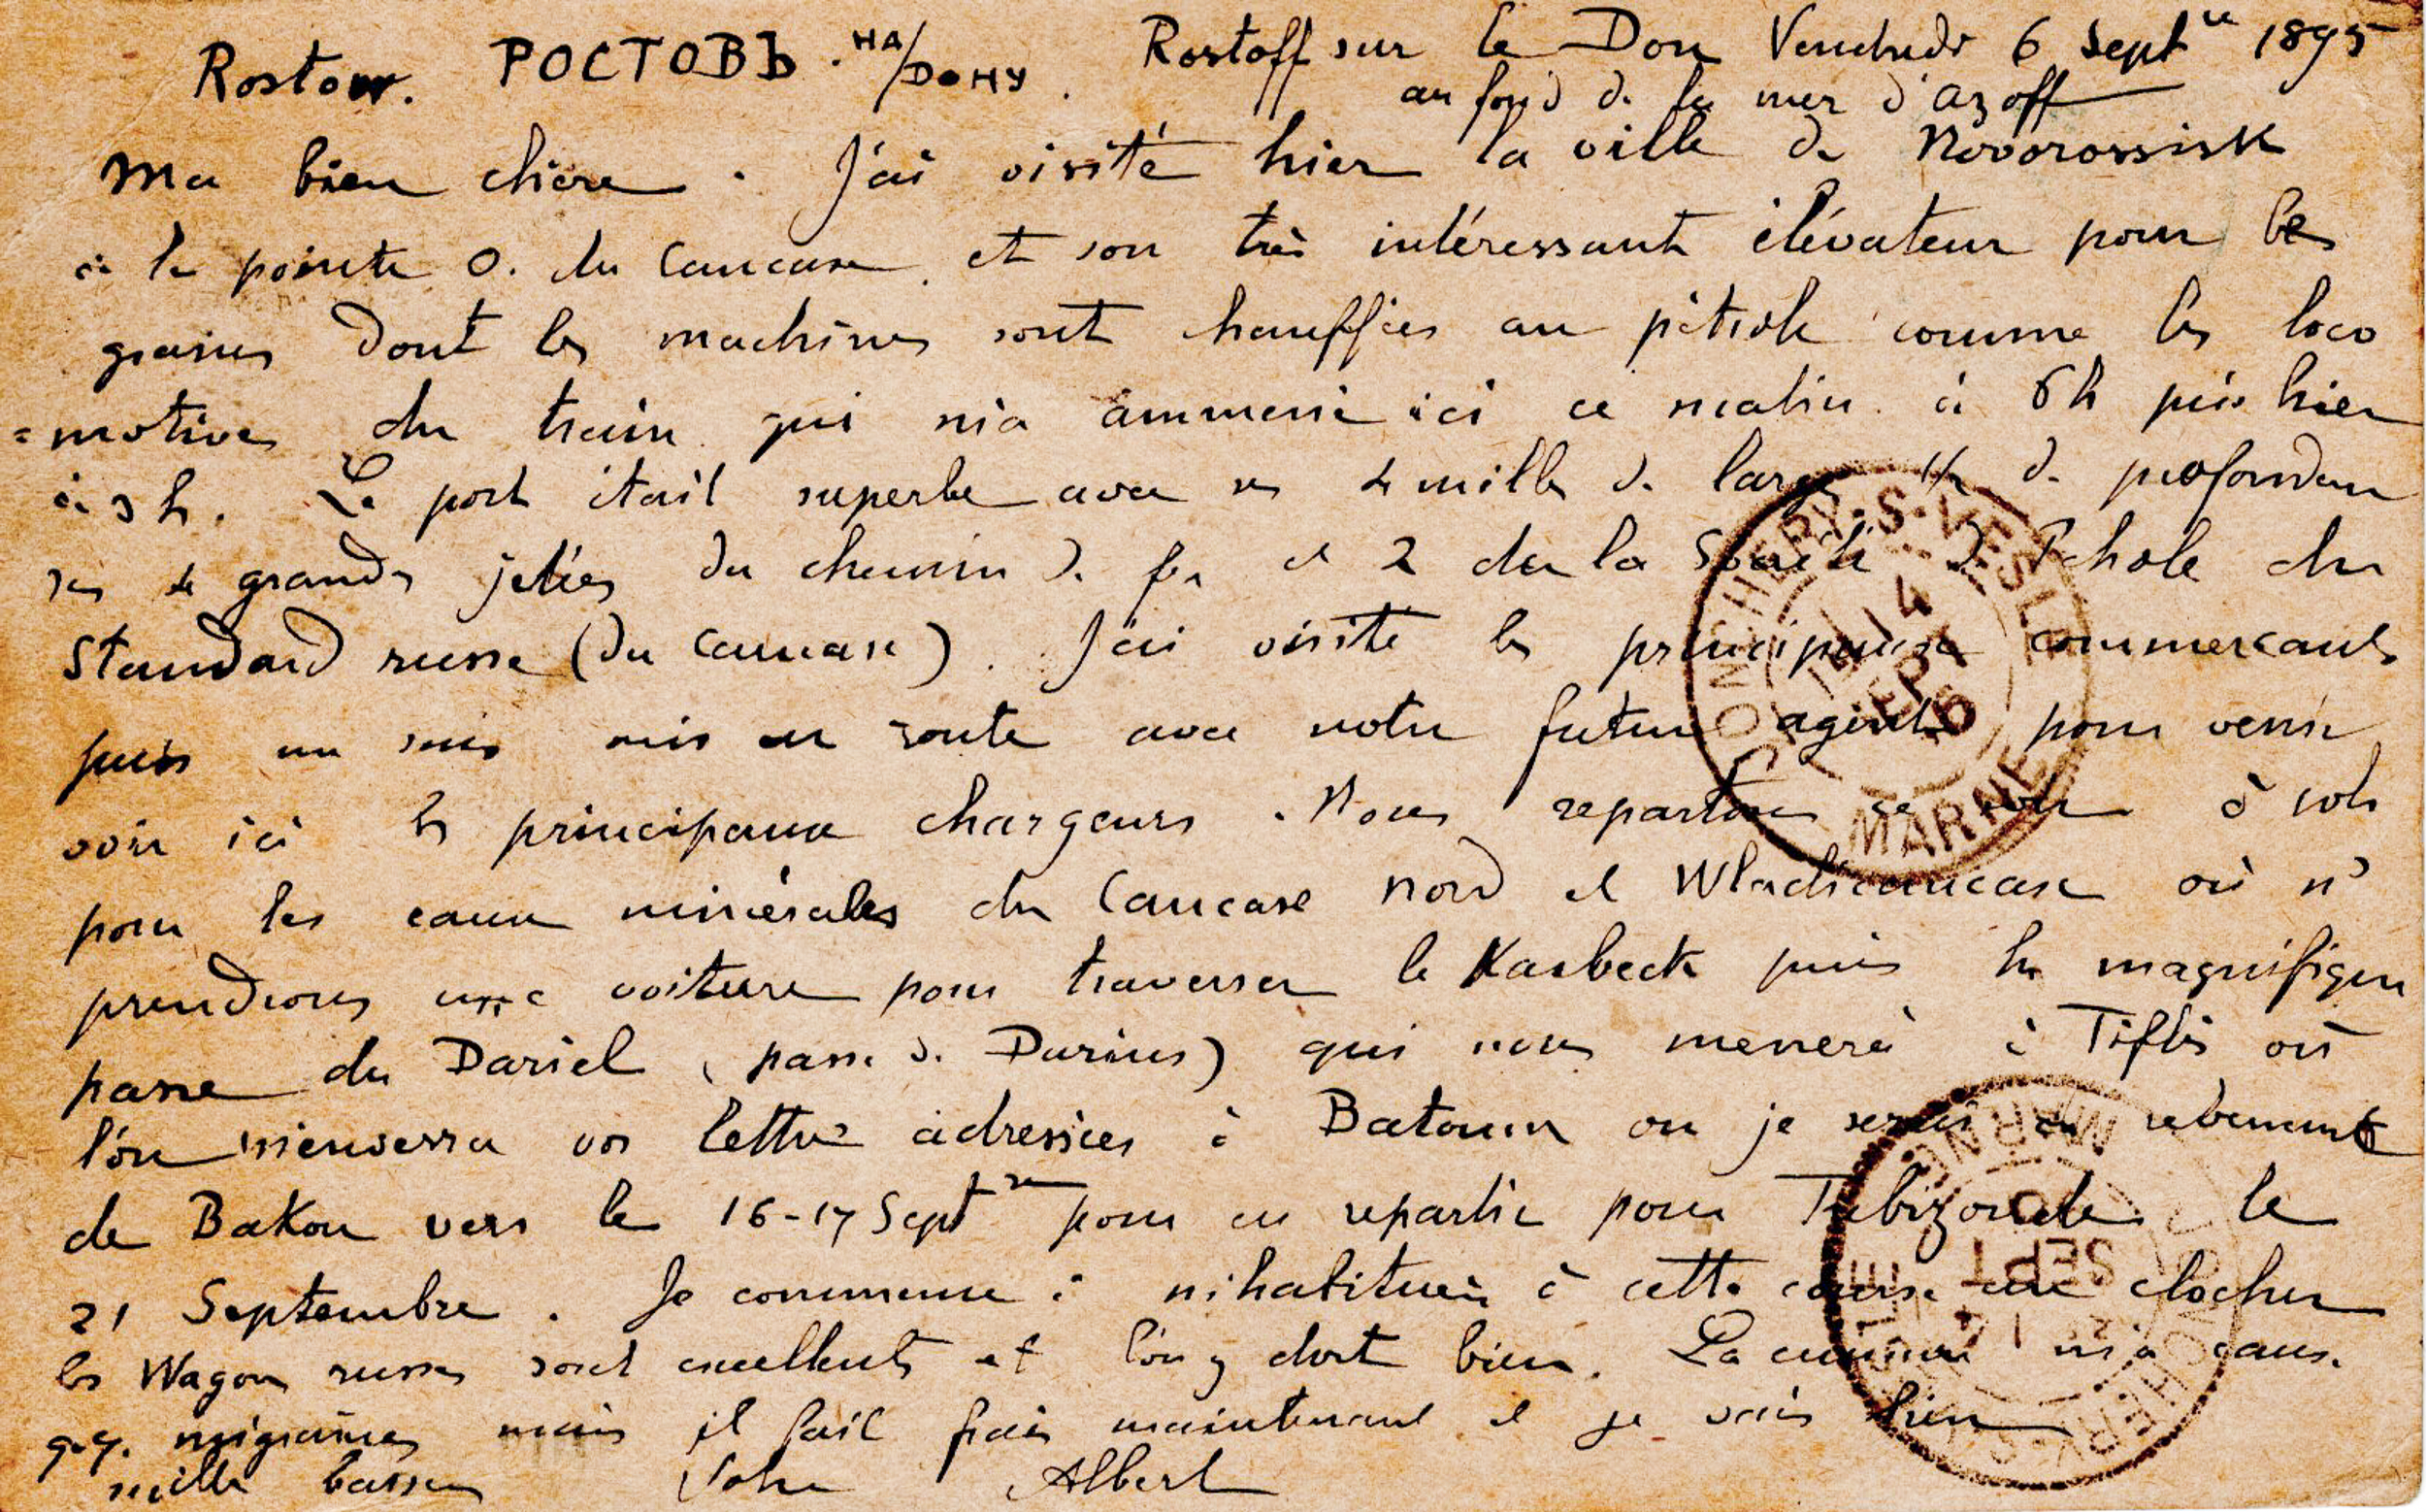 Rostow. РОСТОВЪ. НА/ДОНУ. Rostoff sur le Don Vendredi 6 Septre 1895
au fond de la mer d'azoff
Ma bien chère. J'ai visité hier la ville de Novorossisk
à la pointe O. du Caucase. et son très intéressant élévateur pour les
grains dont les machines sont chauffées au pétrole comme les loco
=motives du train qui m'a ammené ici ce matin à 6h puis hier
à 3 h. Le port était superbe avec ses 4 milles de large 1/2 de profondeur
ses 4 grandes jetées du chemin de fer et 2 de la Société de Pétrole du
Standard russe (du Caucase). J'ai visité les principaux commercants
puis me suis mis en route avec notre futur agent pour venir
voir ici les principaux chargeurs. Nous repartons ce soir à
pour les eaux minérales du Caucase nord et Wladicaucase où n'
prendrons une voiture pour traverser le Kasbeck puis la magnifique
passe du Dariel (passe de Darius) qui nous menera à Tiflis où
l'on m'enverra vos lettres adressées à Batoum ou je serai en revenant
de Bakou vers le 16-17 Septre pour en repartir pour Trébizonde le
21 Septembre. Je commence à m'habituer à cette course au clocher
les Wagons russes sont excellents et l'on y dort bien. La m'a caus.
q.q. migraines mais il fait frais maintenant et je vais bien
mille baisers Albert
CONCHERY-S-VESLE
14
SEPT
95
MARNE
CONCHERY-S-VESLE
14
SEPT
MARNE